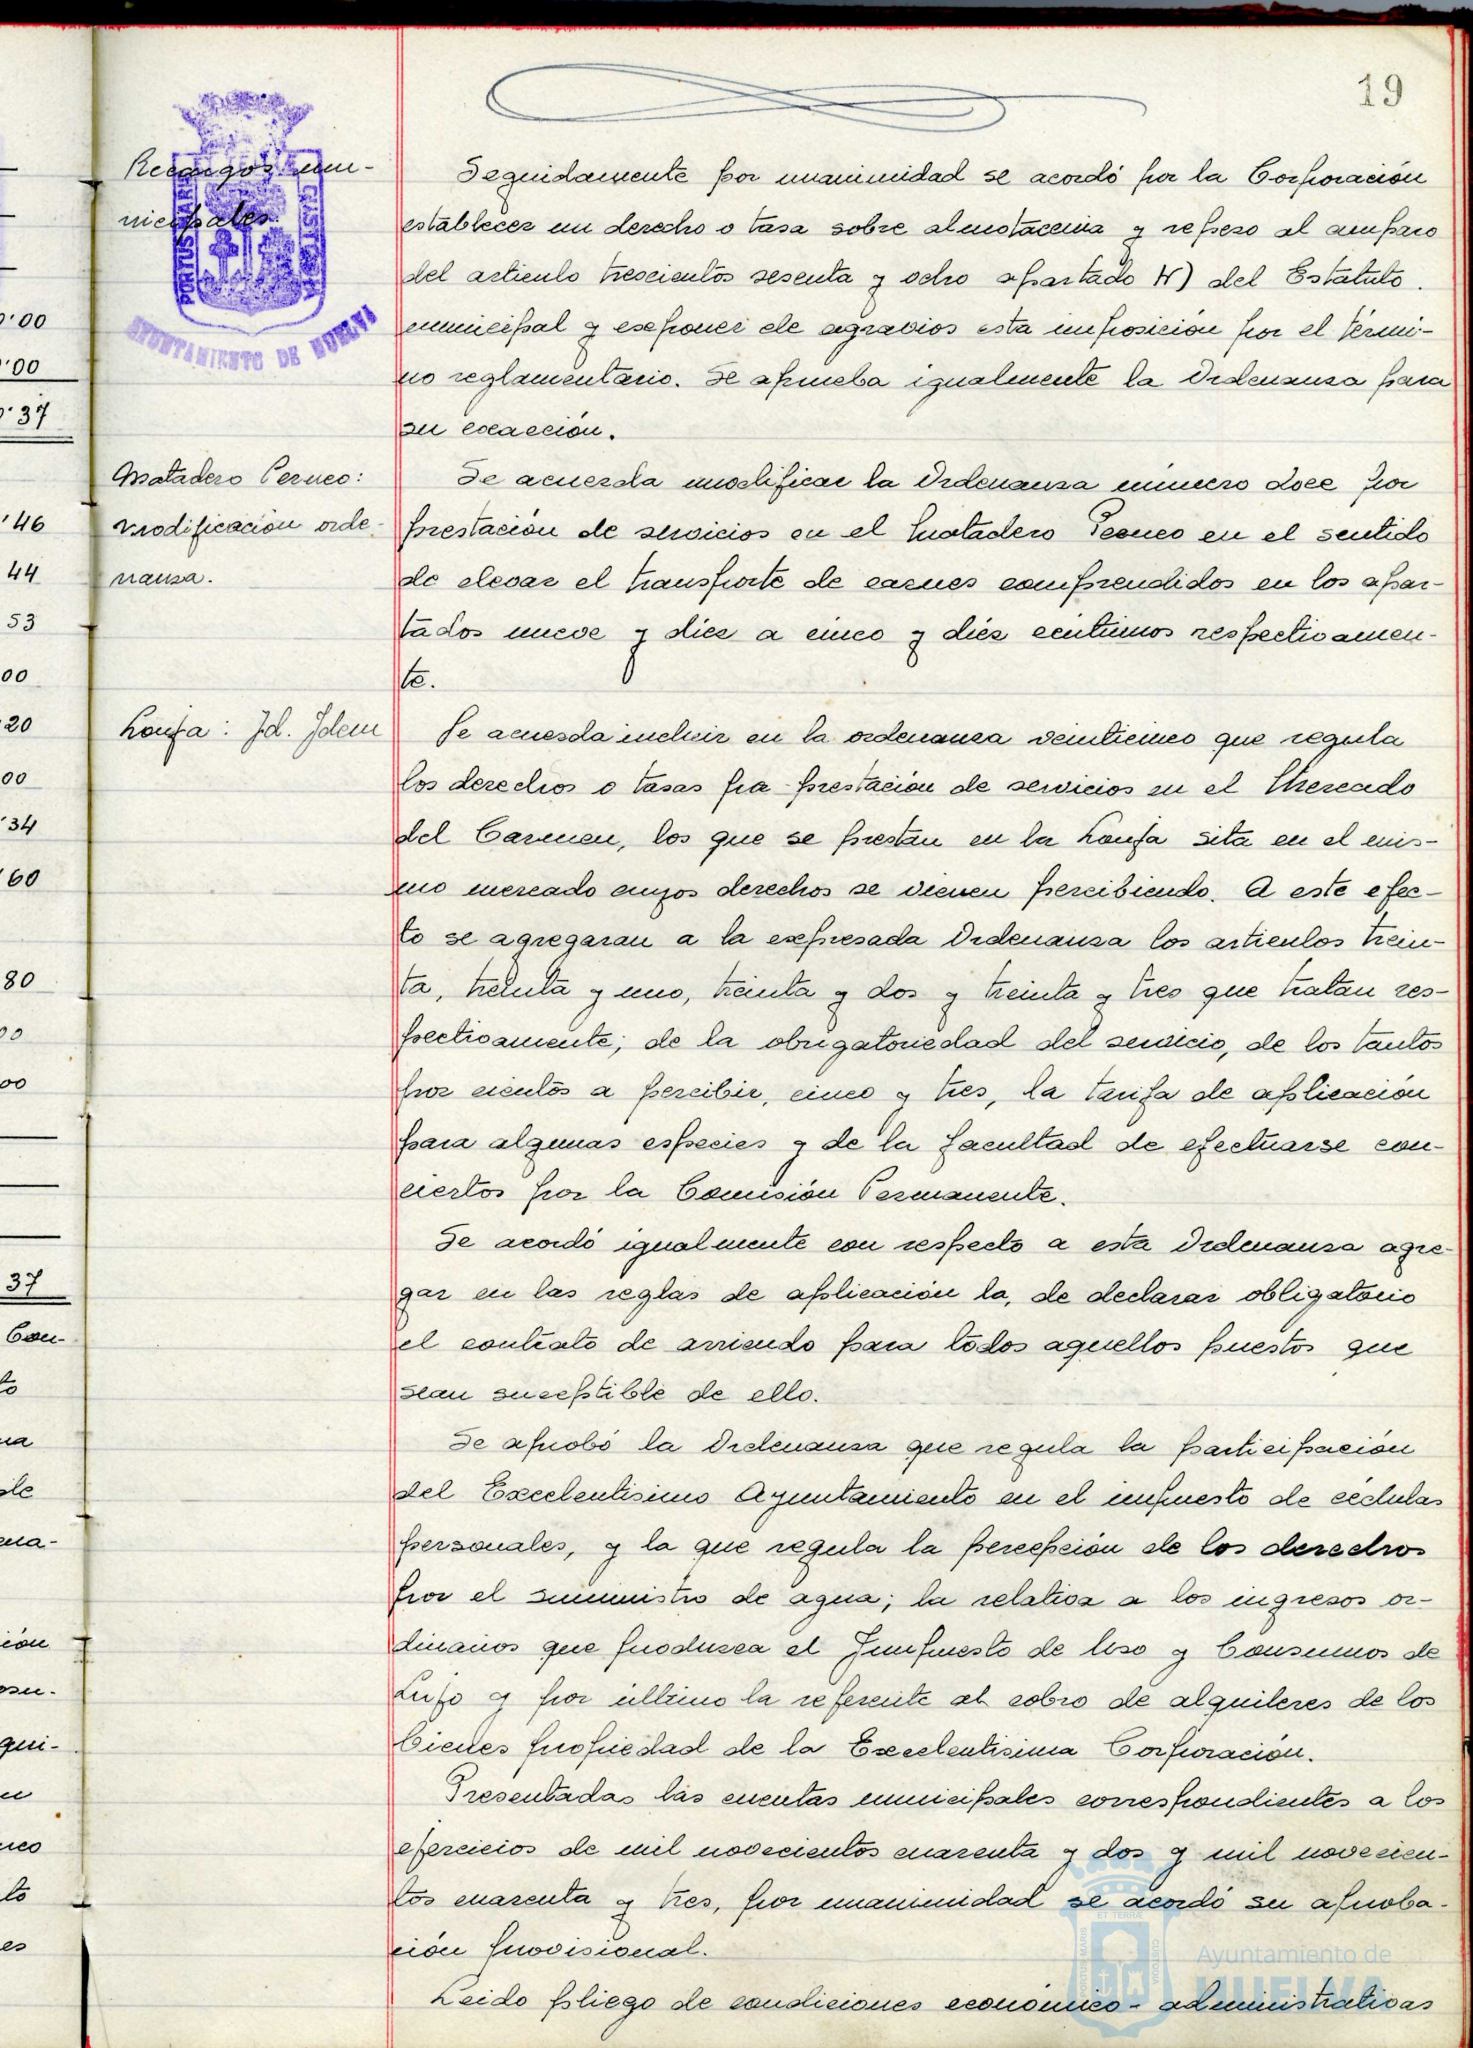 19
Recargos mu-
nicipales
PORTUS MARIS
CUSTODIA
AYUNTAMIENTO DE HUELVA
Seguidamente por unanimidad se acordó por la Corporación
establecer un derecho o tasa sobre almotacenia y repeso al amparo
del articulo trescientos sesenta y ocho apartado H) del Estatuto.
municipal y exponer de agravios esta imposición por el térmi-
no reglamentario. Se aprueba igualmente la Ordenanza para
su exacción.
Matadero Perneo:
modificación orde-
nanza.
Se acuerda modificar la Ordenanza número doce por
prestación de servicios en el Matadero Perneo en el sentido
de elevar el transporte de carnes comprendidos en los apar-
tados nueve y diez a cinco y diéz centimos respectivamen-
te.
Lonja: Id. Idem
Se acuerda incluir en la ordenanza veinticinco que regula
los derechos o tasas pra prestación de servicios en el Mercado
del Carmen, los que se prestan en la Lonja sita en el mis-
mo mercado cuyos derechos se vienen percibiendo. A este efec-
to se agregaran a la expresada Ordenanza los articulos trein-
ta, treinta y uno, treinta y dos y treinta y tres que tratan res-
pectivamente; de la obrigatoriedad del servicio, de los tantos
por cientos a percibir, cinco y tres, la tarifa de aplicación
para algunas especies y de la facultad de efectuarse con-
ciertos por la Comisión Permanente.
Se acordó igualmente con respecto a esta Ordenanza agre-
gar en las reglas de aplicación la, de declarar obligatorio
el contrato de arriendo para todos aquellos puestos que
sean suceptible de ello.
Se aprobó la Ordenanza que regula la participación
del Excelentisimo Ayuntamiento en el impuesto de cédulas
personales, y la que regula la percepción de los derechos
por el suministro de agua; la relativa a los ingresos or-
dinarios que produzca el Impuesto de Uso y Consumos de
Lujo y por último la referente al cobro de alquileres de los
bienes propiedad de la Excelentisima Corporación.
Presentadas las cuentas municipales correspondientes a los
ejercicios de mil novecientos cuarenta y dos y mil novecien-
tos cuarenta y tres, por unanimidad se acordó su aproba-
ción provisional.
Leido pliego de condiciones económico-administrativas
Ayuntamiento de
HUELVA
0'00
0'00
0'37
'46
44
53
00
20
00
'34
'60
80
00
00
37
Con-
to
na
de
ena-
ión
osu-
qui-
en
nco
to
es